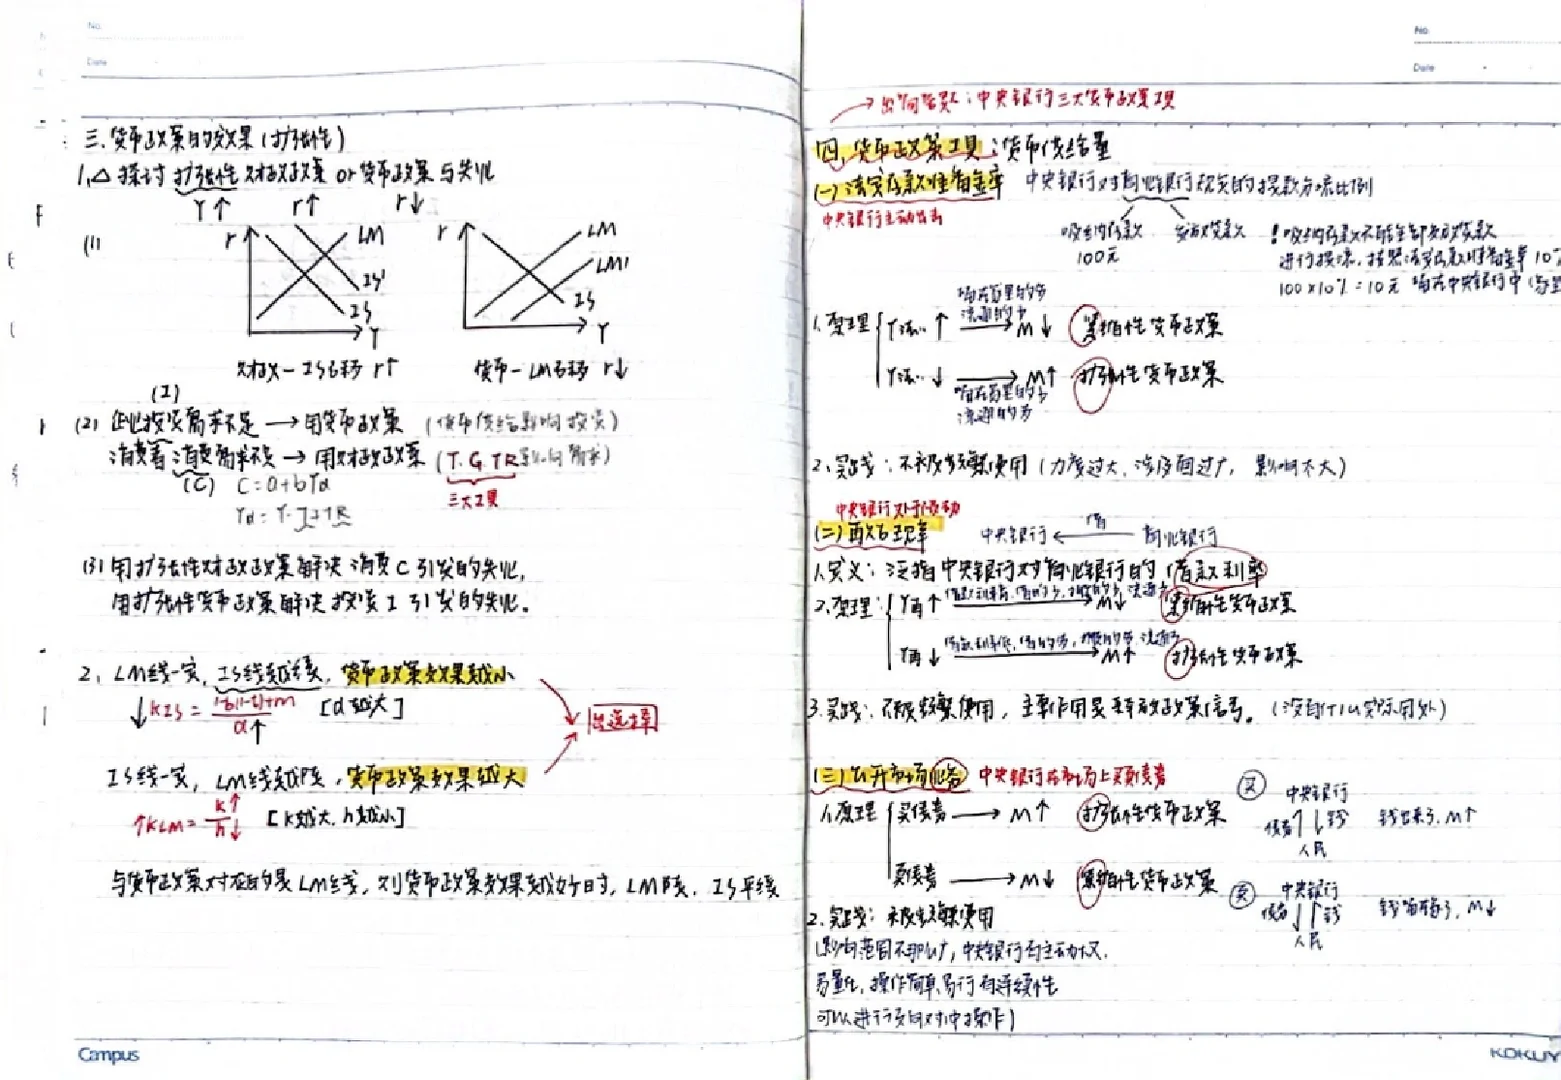 No.
Date
三.货币政策的效果(扩张性)
1.△探讨扩张性财政政策 or 货币政策与失业
Y↑ r↑ r↓
(1)
r LM IS' IS Y
r LM LM1 IS Y
财政—IS右移 r↑
货币—LM右移 r↓
(I)
(2) 企业投资需求不足 → 用货币政策 (货币供给影响投资)
消费者消费需求不足 → 用财政政策 (T.G.TR影响需求)
(C) C=a+bYd
三大工具
Yd=Y-T+TR
(3) 用扩张性财政政策解决消费C引发的失业,
用扩张性货币政策解决投资I引发的失业。
2. LM线一定, IS线越缓, 货币政策效果越小
↓KIS = 1-b(1-t)+m / d↑ [d越大]
出选择
IS线一定, LM线越陡, 货币政策效果越大
↑KLM = k↑ / h↓ [k越大, h越小]
与货币政策对应的是LM线, 则货币政策效果越好时, LM陡, IS平缓
Campus
No.
Date
→ 出简答题: 中央银行三大货币政策工具
四.货币政策工具: 货币供给量
(一) 法定存款准备金率 中央银行对商业银行规定的提款存底比例
中央银行主动出击
吸纳存款 发放贷款
100元
! 吸纳存款不能全部发放贷款
进行提底, 按照法定存款准备金率10%
100×10%=10元 留在中央银行中
1.原理 Y法.. ↑ 留在国里的多 流通的少 → M↓ 紧缩性货币政策
Y法.. ↓ 留在国里的少 流通的多 → M↑ 扩张性货币政策
2.实践: 不被频繁使用 (力度过大, 涉及面过广, 影响不大)
中央银行处于被动
(二) 再贴现率 中央银行 ← 借 商业银行
1.定义: 泛指中央银行对商业银行的借款利率
2.原理: Y再↑ → M↓ 紧缩性货币政策
Y再↓ → M↑ 扩张性货币政策
3.实践: 不被频繁使用, 主要作用是释放政策信号。(没有什么实际用处)
(三) 公开市场业务 中央银行在市场上买卖债券
1.原理 买债券 → M↑ 扩张性货币政策
买 中央银行 债券↑↓钱 人民 钱出来了, M↑
卖债券 → M↓ 紧缩性货币政策
卖 中央银行 债券↓↑钱 人民 钱留存了, M↓
2.实践: 被频繁使用
(影响范围不那么广, 中央银行有主动权.
易量化, 操作简单易行有连续性
可以进行反向对冲操作)
KOKUY